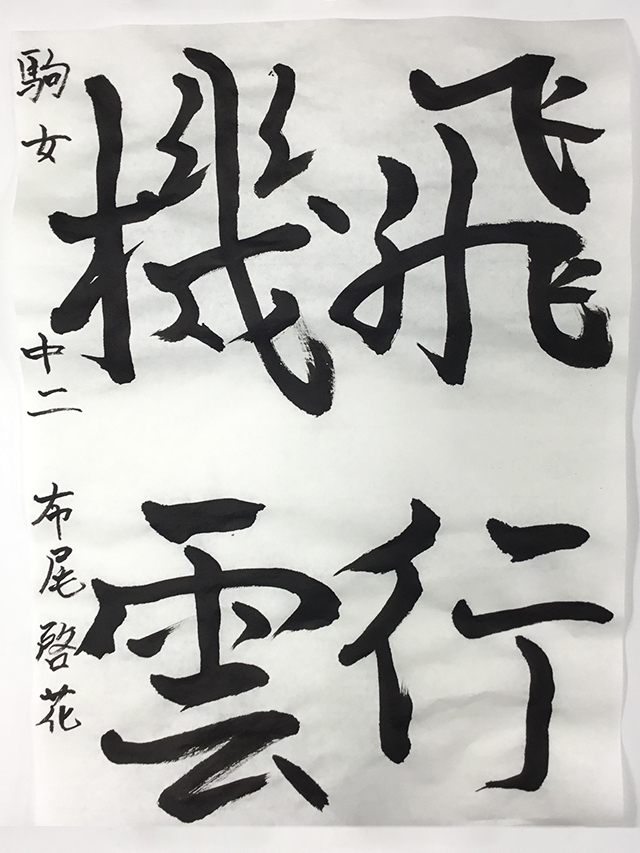 飛行
機雲
駒女 中二 布尾啓花